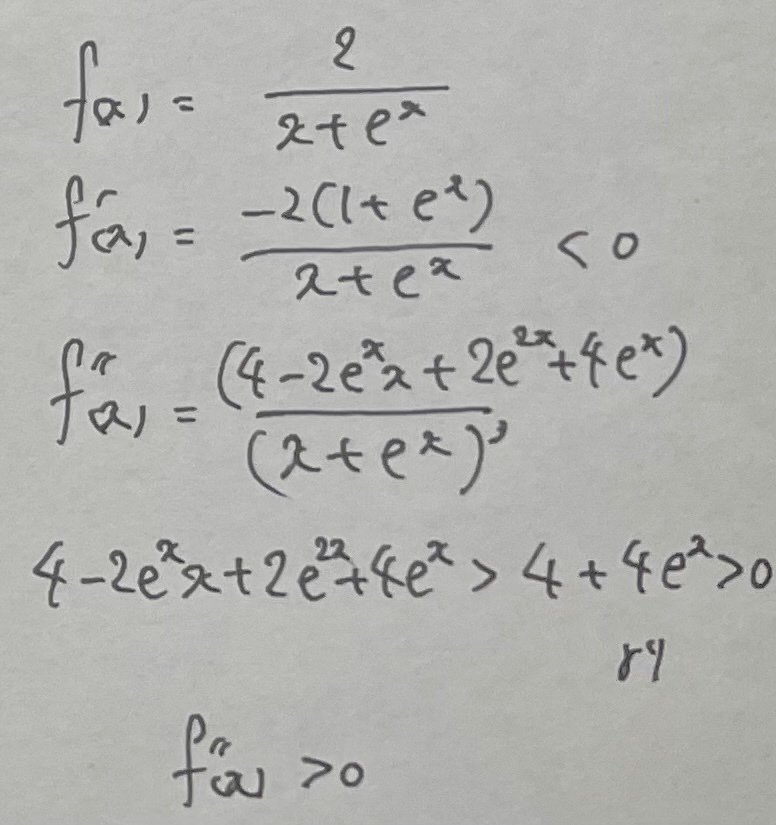 f(x) = 2 / (x + e^x)
f'(x) = -2(1 + e^x) / (x + e^x) < 0
f''(x) = (4 - 2e^x x + 2e^{2x} + 4e^x) / (x + e^x)^3
4 - 2e^x x + 2e^{2x} + 4e^x > 4 + 4e^x > 0
より
f''(x) > 0